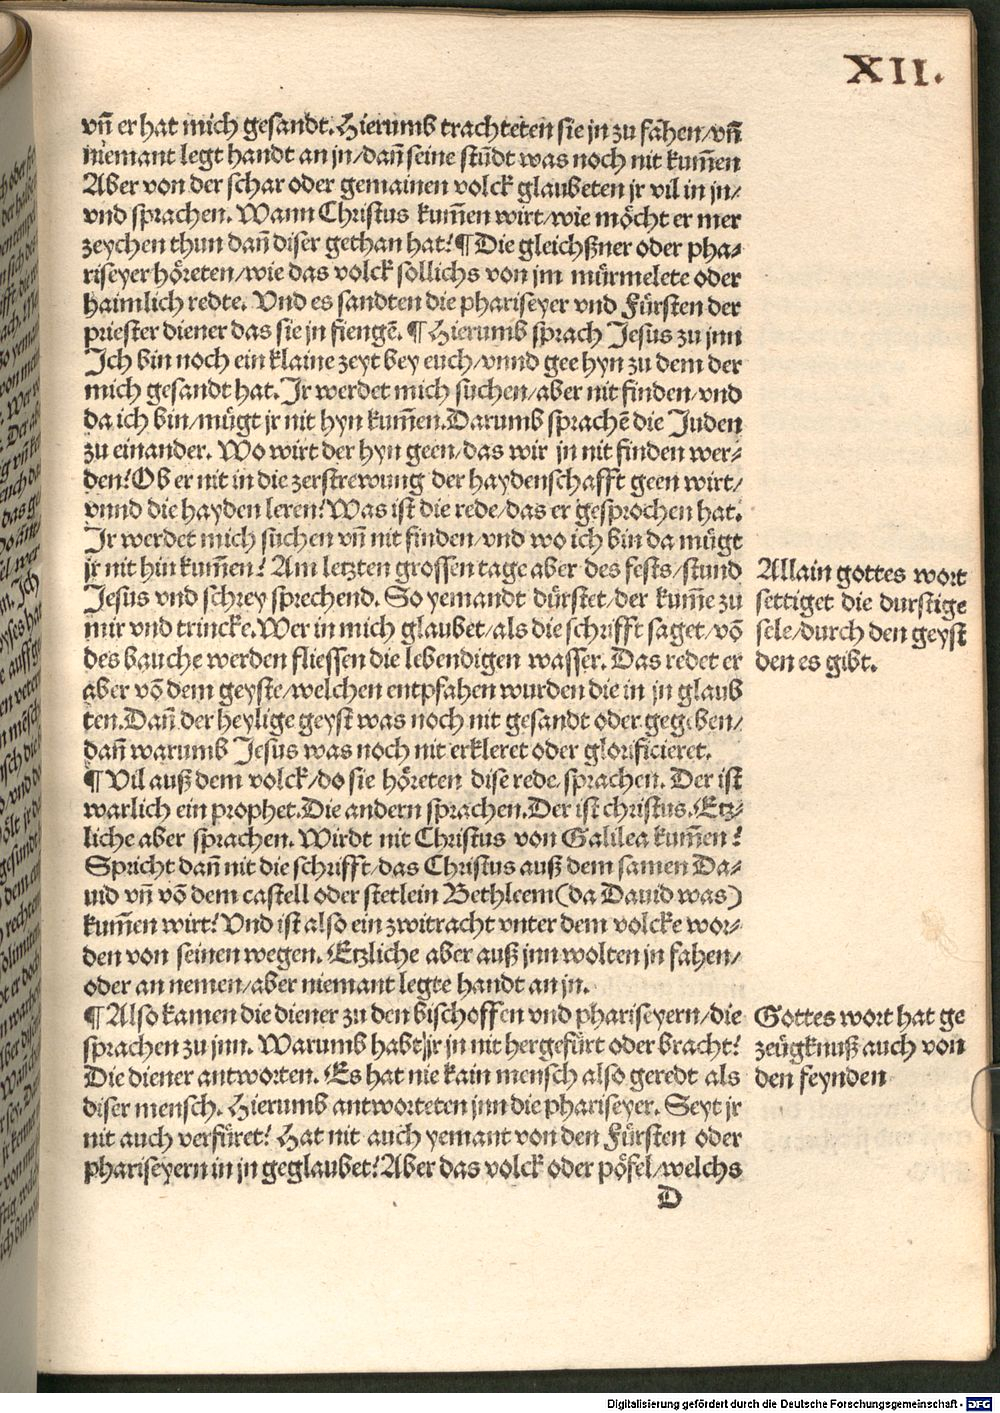 XII.
vñ er hat mich gesandt. Hierumb trachteten sie jn zu fahen/vñ
niemant legt handt an jn/dañ seine stũdt was noch nit kum̃en
Aber von der schar oder gemainen volck glaubeten jr vil in jn/
vnd sprachen. Wann Christus kum̃en wirt/wie möcht er mer
zeychen thun dañ diser gethan hat? ¶ Die gleichßner oder pha⸗
riseyer höreten/wie das volck sollichs von jm mürmelete oder
haimlich redte. Vnd es sandten die phariseyer vnd Fürsten der
priester diener das sie jn fiengẽ. ¶ Hierumb sprach Jesus zu jnn
Ich bin noch ein klaine zeyt bey euch/vnnd gee hyn zu dem der
mich gesandt hat. Ir werdet mich suchen/aber nit finden/vnd
da ich bin/mügt jr nit hyn kum̃en. Darumb sprachẽ die Juden
zu einander. Wo wirt der hyn geen/das wir jn nit finden wer⸗
den? Ob er nit in die zerstrewung der haydenschafft geen wirt/
vnnd die hayden leren? Was ist die rede/das er gesprochen hat.
Ir werdet mich suchen vñ nit finden/vnd wo ich bin da mügt
jr nit hin kum̃en? Am letzten grossen tage aber des fests/stund
Jesus vnd schrey sprechend. So yemandt dürstet/der kum̃e zu
mir vnd trincke. Wer in mich glaubet/als die schrifft saget/võ
des bauche werden fliessen die lebendigen wasser. Das redet er
aber võ dem geyste/welchen entpfahen wurden die in jn glaub
ten. Dañ der heylige geyst was noch nit gesandt oder gegeben/
dañ warumb Jesus was noch nit erkleret oder glorificieret.
Allain gottes wort
settiget die durstige
sele/durch den geyst
den es gibt.
¶ Vil auß dem volck/do sie höreten dise rede/sprachen. Der ist
warlich ein prophet. Die andern sprachen. Der ist christus. Etz⸗
liche aber sprachen. Wirdt nit Christus von Galilea kum̃en?
Spricht dañ nit die schrifft/das Christus auß dem samen Da⸗
uid vñ võ dem castell oder stetlein Bethleem (da Dauid was)
kum̃en wirt? Vnd ist also ein zwitracht vnter dem volcke wor⸗
den von seinen wegen. Etzliche aber auß jnn wolten jn fahen/
oder an nemen/aber niemant legte handt an jn.
¶ Also kamen die diener zu den bischoffen vnd phariseyern/die
sprachen zu jnn. Warumb habt jr jn nit hergefürt oder bracht?
Die diener antworten. Es hat nie kain mensch also geredt als
diser mensch. Hierumb antworteten jnn die phariseyer. Seyt jr
nit auch verfüret? Hat nit auch yemant von den Fürsten oder
phariseyern in jn geglaubet? Aber das volck oder pöfel/welchs
Gottes wort hat ge
zeügknuß auch von
den feynden
D
Digitalisierung gefördert durch die Deutsche Forschungsgemeinschaft - DFG